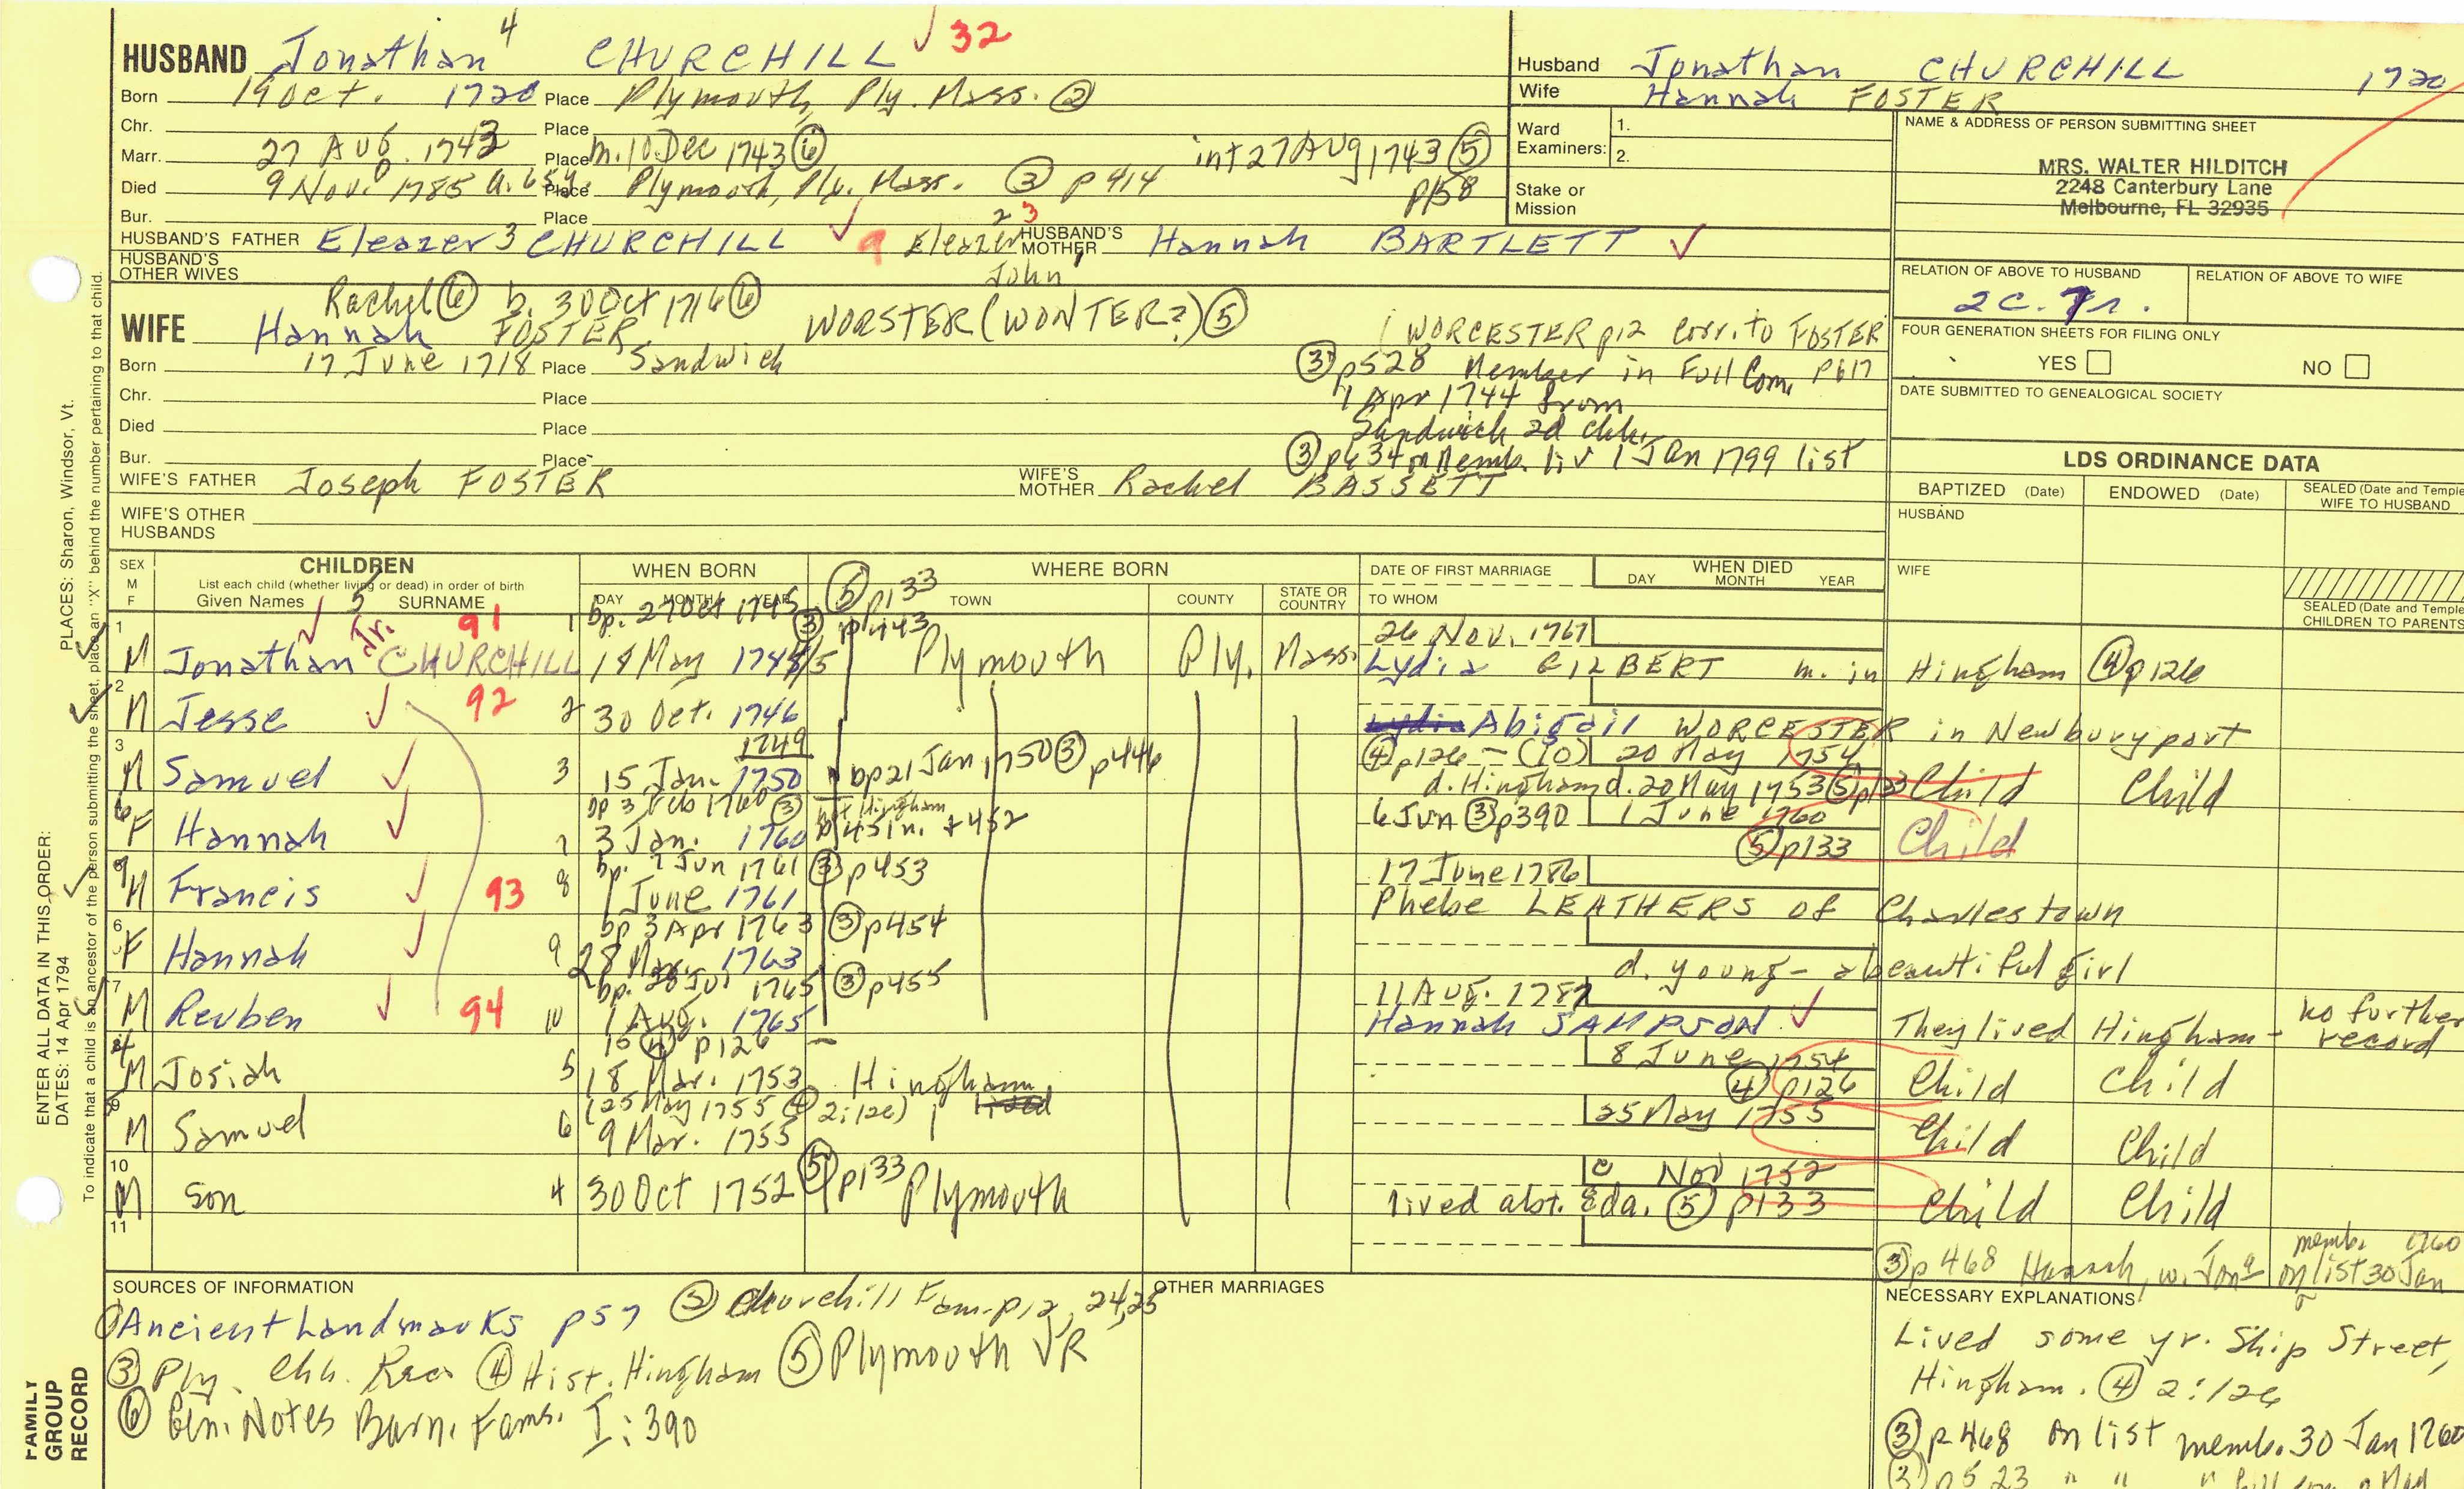 HUSBAND Jonathan 4 CHURCHILL ✓ 32
Born 19 Oct. 1720 Place Plymouth, Ply. Mass. ②
Chr. Place
Marr. 27 AUG. 1743 Place m. 10 Dec 1743 ⑥ int 27 Aug 1743 ⑤ p158
Died 9 Nov. 1785 a. 65y. Place Plymouth, Ply. Mass. ③ p414
Bur. Place
HUSBAND'S FATHER Eleazer 3 CHURCHILL ✓ 9 Eleazer 2 3 John 1 HUSBAND'S MOTHER Hannah BARTLETT ✓
HUSBAND'S OTHER WIVES
Rachel ⑥ b. 30 Oct 1716 ⑥
WIFE Hannah FOSTER WORSTER (WONTER?) ⑤ (WORCESTER p12 Corr. to FOSTER
Born 17 June 1718 Place Sandwich ③ p528 Member in Full Com. p617
Chr. Place 1 Apr 1744 from
Died Place Sandwich 2d chh.
Bur. Place ③ p634 on Memb. liv 1 Jan 1799 list
WIFE'S FATHER Joseph FOSTER WIFE'S MOTHER Rachel BASSETT
WIFE'S OTHER HUSBANDS
Husband Jonathan CHURCHILL 1720
Wife Hannah FOSTER
Ward Examiners: 1.
2.
Stake or Mission
NAME & ADDRESS OF PERSON SUBMITTING SHEET
MRS. WALTER HILDITCH
2248 Canterbury Lane
Melbourne, FL 32935
RELATION OF ABOVE TO HUSBAND RELATION OF ABOVE TO WIFE
2C. 7r.
FOUR GENERATION SHEETS FOR FILING ONLY
YES NO
DATE SUBMITTED TO GENEALOGICAL SOCIETY
LDS ORDINANCE DATA
BAPTIZED (Date) ENDOWED (Date) SEALED (Date and Temple WIFE TO HUSBAND
HUSBAND
WIFE
SEALED (Date and Temple CHILDREN TO PARENTS
SEX M F CHILDREN WHEN BORN WHERE BORN DATE OF FIRST MARRIAGE WHEN DIED
List each child (whether living or dead) in order of birth DAY MONTH YEAR
Given Names SURNAME DAY MONTH YEAR TOWN COUNTY STATE OR COUNTRY TO WHOM
✓ 5 Jr. 91 1 bp. 27 Oct 1745 ③ p443 ⑤ p133 26 Nov. 1767
1 M Jonathan CHURCHILL 18 May 1745 Plymouth Ply. Mass. Lydia GILBERT m. in Hingham ④ p126
2 M Jesse ✓ 92 2 30 Oct. 1746 Abigail WORCESTER in Newburyport
1749 ④ p126 - (10) 20 May 1754
3 M Samuel ✓ 3 15 Jan. 1750 bp 21 Jan 1750 ③ p446 d. Hingham d. 20 May 1753 ⑤ p133 Child Child
bp 3 Feb 1760 ③ at Hingham 6 Jun ③ p390 1 June 1760
6 F Hannah ✓ 7 3 Jan. 1760 p451n. + 452 ⑤ p133 Child
bp. 7 Jun 1761 ③ p453 17 June 1786
M Francis ✓ 93 8 1 June 1761 Phebe LEATHERS of Charlestown
bp 3 Apr 1763 ③ p454
6 F Hannah ✓ 9 28 Mar. 1763 d. young - a beautiful girl
bp. 28 Jul 1765 ③ p455 11 AUG. 1787
7 M Reuben ✓ 94 10 1 Aug. 1765 Hannah SAMPSON ✓ They lived Hingham - no further record
15 ④ p126 8 June 1754
M Josiah 5 18 Mar. 1753 Hingham ④ p126 Child Child
(25 May 1755 ④ 2:126) 25 May 1755
9 M Samuel 6 9 Mar. 1755 Child Child
Nov 1752
10 M son 4 30 Oct 1752 ⑤ p133 Plymouth lived abt. 8da. ⑤ p133 Child Child
11
③ p468 Hannah, w. Jona memb. 1760 on list 30 Jan
SOURCES OF INFORMATION
① Ancient Landmarks p57 ② Churchill Fam. p12, 24, 25
③ Ply. Chh. Recs ④ Hist. Hingham ⑤ Plymouth VR
⑥ Gen. Notes Barn. Fams. I:390
OTHER MARRIAGES
NECESSARY EXPLANATIONS
Lived some yr. Ship Street,
Hingham. ④ 2:126
③ p468 on list memb. 30 Jan 1760
③ p523 " " "
PLACES: Sharon, Windsor, Vt.
ENTER ALL DATA IN THIS ORDER:
DATES: 14 Apr 1794
To indicate that a child is an ancestor of the person submitting the sheet, place an "X" behind the number pertaining to that child.
FAMILY GROUP RECORD